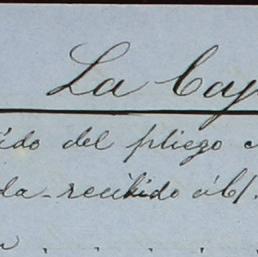 La Cap
ido del pliego
da - recibido á b/.